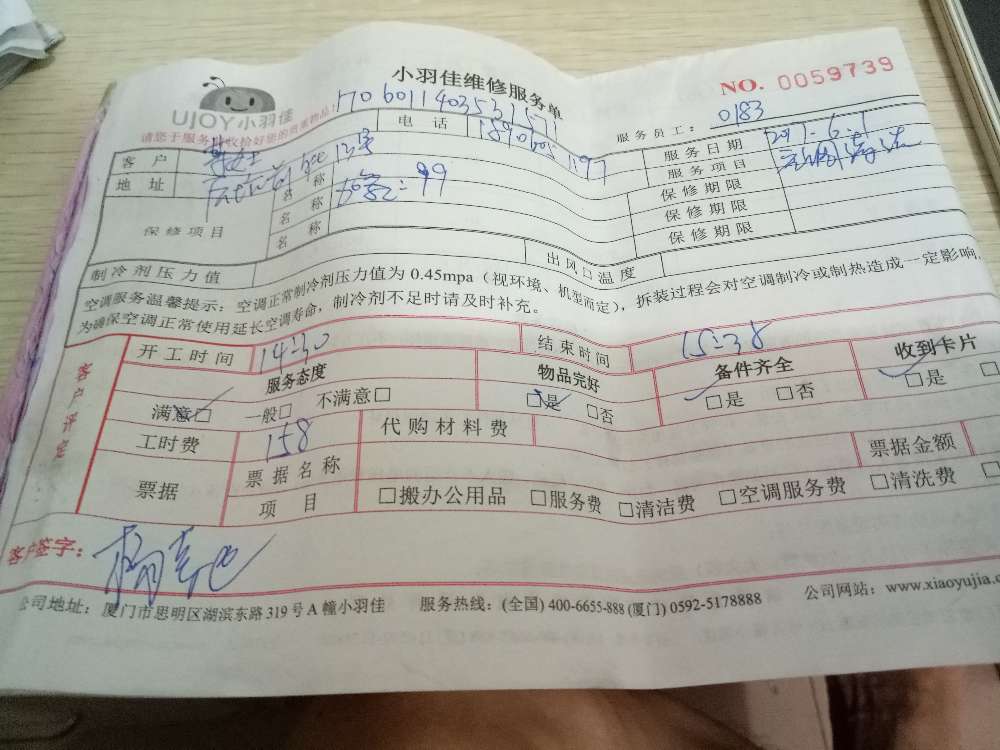 小羽佳维修服务单
NO. 0059739
UJOY小羽佳
请您于服务 收拾好您的贵重物品!
服务员工: 0183
客户 电话 服务日期 2017.6.1
地址 服务项目
保修项目 名称 99 保修期限
名称 保修期限
名称 保修期限
制冷剂压力值 出风口温度
空调服务温馨提示：空调正常制冷剂压力值为 0.45mpa（视环境、机型而定），拆装过程会对空调制冷或制热造成一定影响，
为确保空调正常使用延长空调寿命，制冷剂不足时请及时补充。
客户评定
开工时间 14:30 结束时间 15:38
服务态度 物品完好 备件齐全 收到卡片
满意□ 一般□ 不满意□ □是 □否 □是 □否 □是 □
工时费 158 代购材料费
票据 票据名称 票据金额
项目 □搬办公用品 □服务费 □清洁费 □空调服务费 □清洗费 □
客户签字：
公司地址：厦门市思明区湖滨东路 319 号 A 幢小羽佳 服务热线：(全国) 400-6655-888 (厦门) 0592-5178888 公司网站：www.xiaoyujia.c